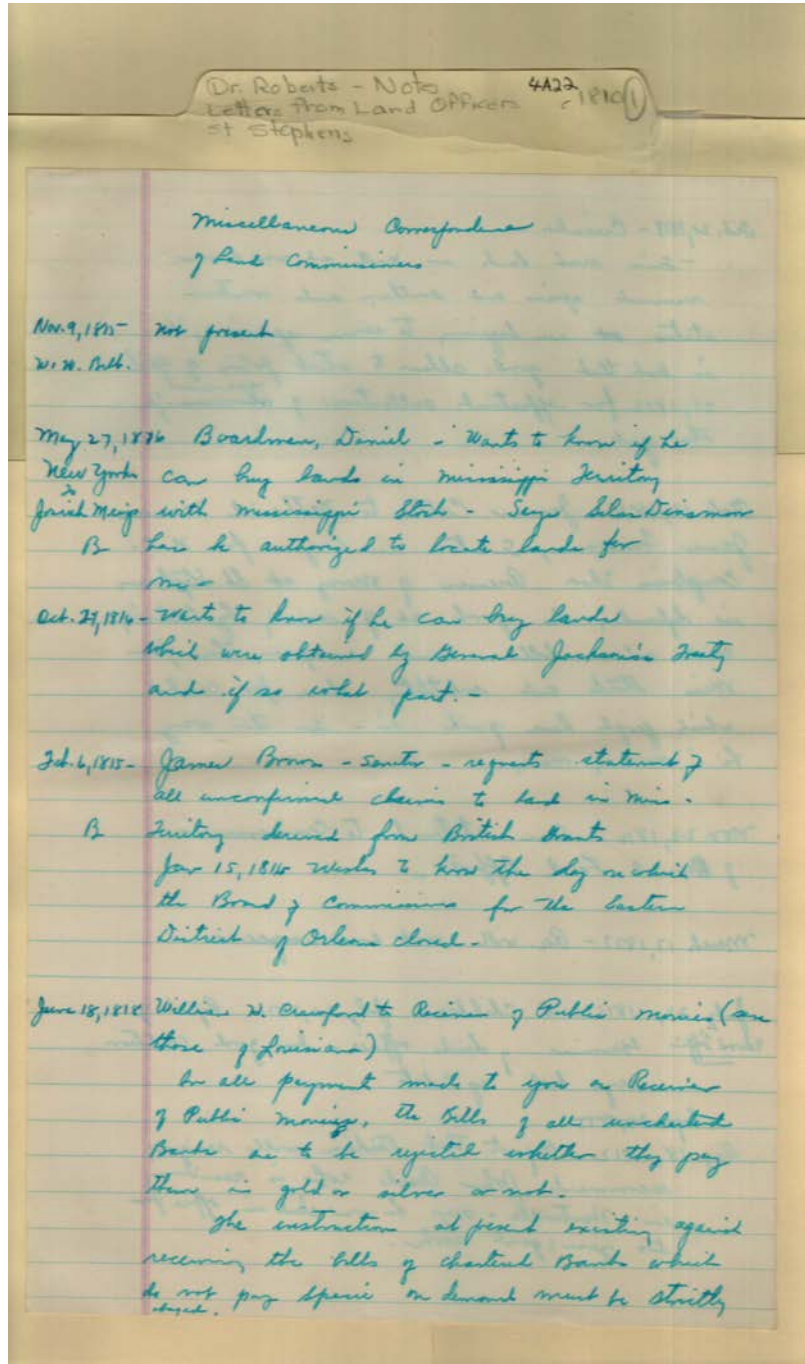 Dr. Roberts - Notes 4A22 1810 1
Letters from Land Officers
St Stephens
Miscellaneous Correspondence
of Land Commissioners
Nov. 9, 1815 - not present
W. W. Bibb.
May 27, 1816 Boardman, Daniel - Wants to know if he
New York can buy lands in Mississippi Territory
to
Josiah Meigs with Mississippi Stock - Says Silas Dinsmoor
B has be authorized to locate lands for
me -
Oct. 29, 1816 - Wants to know if he can buy lands
which were obtained by General Jackson's Treaty
and if so what part. -
Feb. 6, 1815 - James Brown - Senator - requests statement of
all unconfirmed claims to land in Miss.
B Territory derived from British Grants
Jan 15, 1816 Wishes to know the day on which
the Board of Commissioners for the Eastern
District of Orleans closed. -
June 18, 1818 William W. Crawford to Receiver of Public monies (see
those of Louisiana)
In all payment made to you as Receiver
of Public Moneys, the Bills of all unchartered
Banks are to be rejected whether they pay
them in gold or silver or not.
The instruction at present existing against
receiving the bills of chartered Banks which
do not pay specie on demand must be strictly
obeyed.